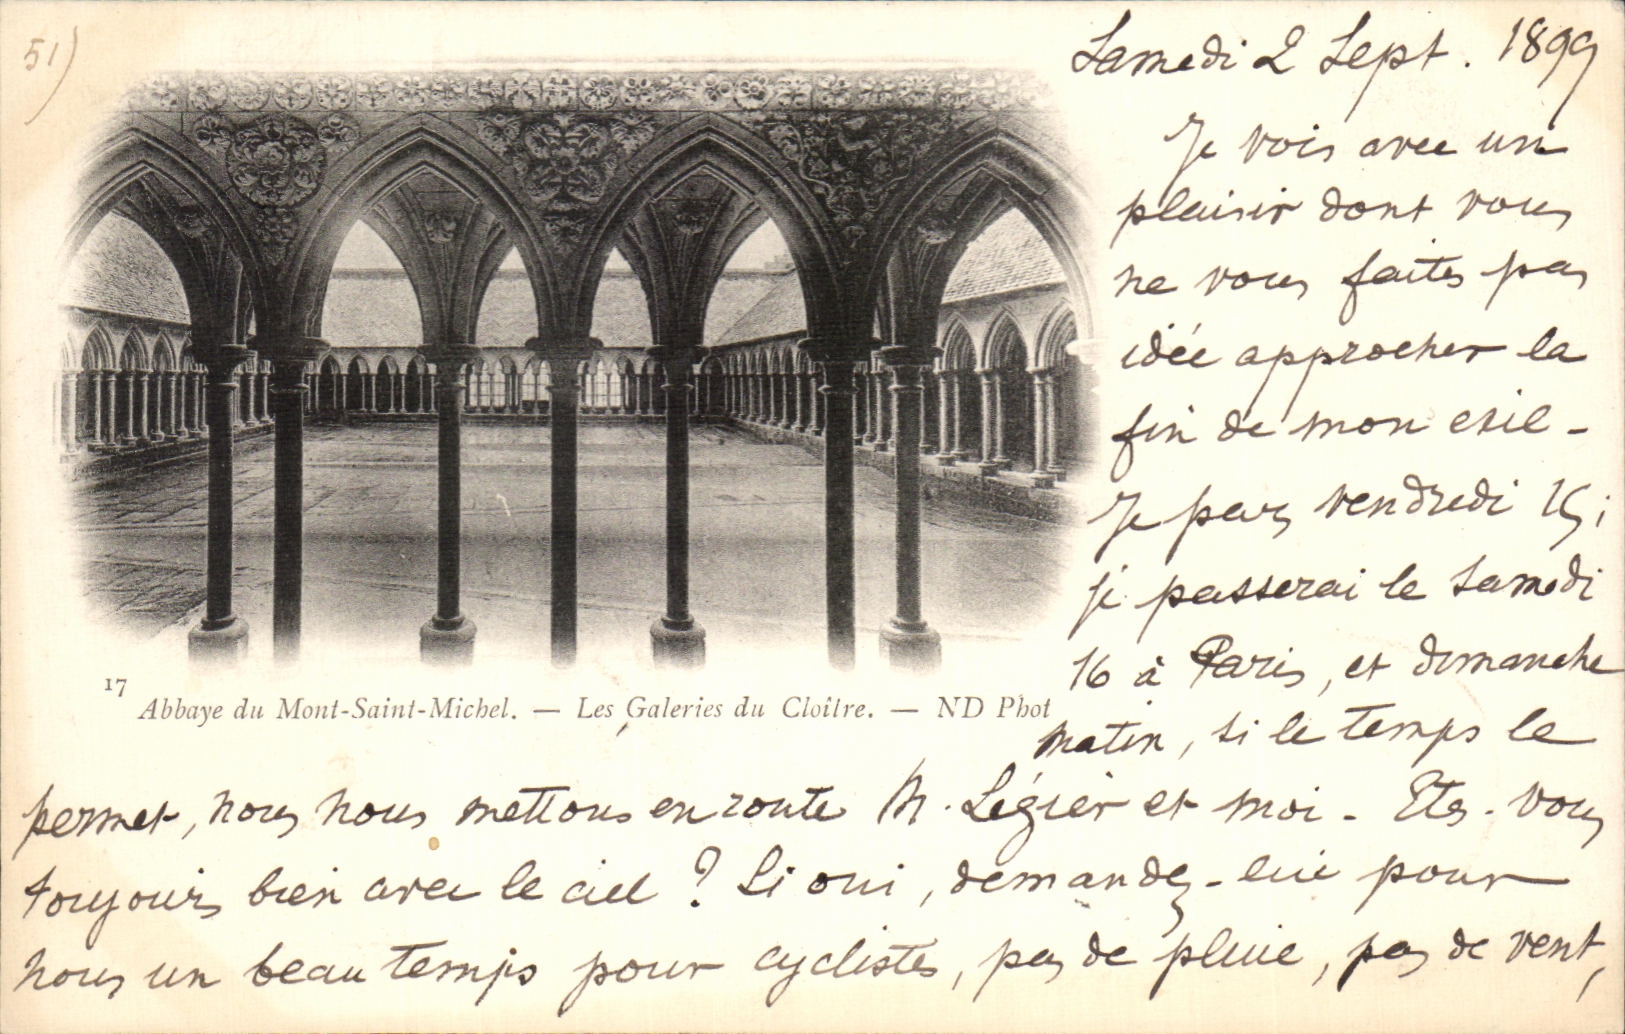 51)
Samedi 2 Sept. 1899
Je vois avec un
plaisir dont vous
ne vous faites pas
idée approcher la
fin de mon exil -
Je pars vendredi 15;
je passerai le samedi
16 à Paris, et dimanche
17 Abbaye du Mont-Saint-Michel. — Les Galeries du Cloître. — ND Phot
matin, si le temps le
permet, nous nous mettons en route M. Légier et moi - Etes-vous
toujours bien avec le ciel ? Si oui, demandez-lui pour
nous un beau temps pour cyclistes, pas de pluie, pas de vent,